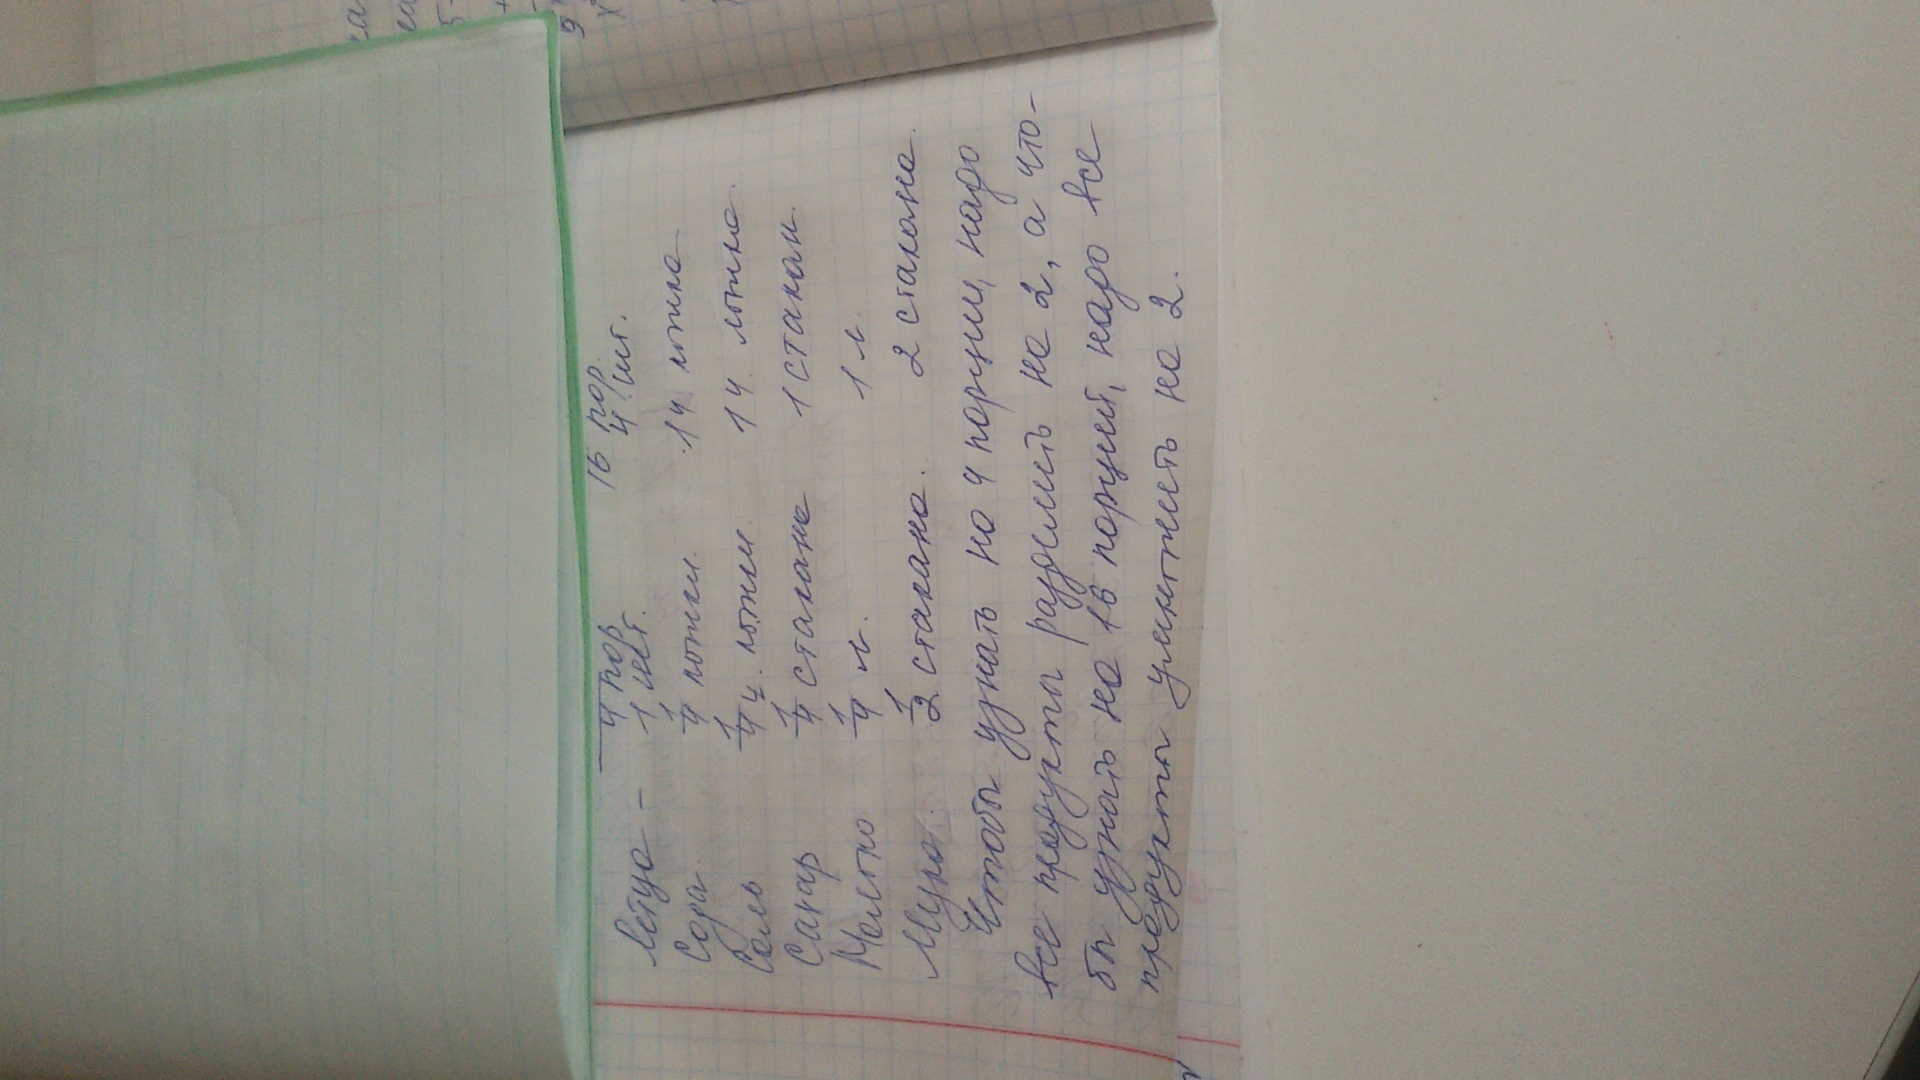 4 пор 16 пор.
Яйца – 1 шт. 4 шт.
Сода 1/4 ложки. 1 ч ложка
Соль 1/4 ч. ложки. 1 ч. ложка.
Сахар 1/4 стакана 1 стакан.
Молоко 1/4 л. 1 л.
Мука. 1/2 стакана. 2 стакана.
Чтобы узнать на 4 порции, надо
все продукты разделить на 2, а что-
бы узнать на 16 порций, надо все
продукты умножить на 2.